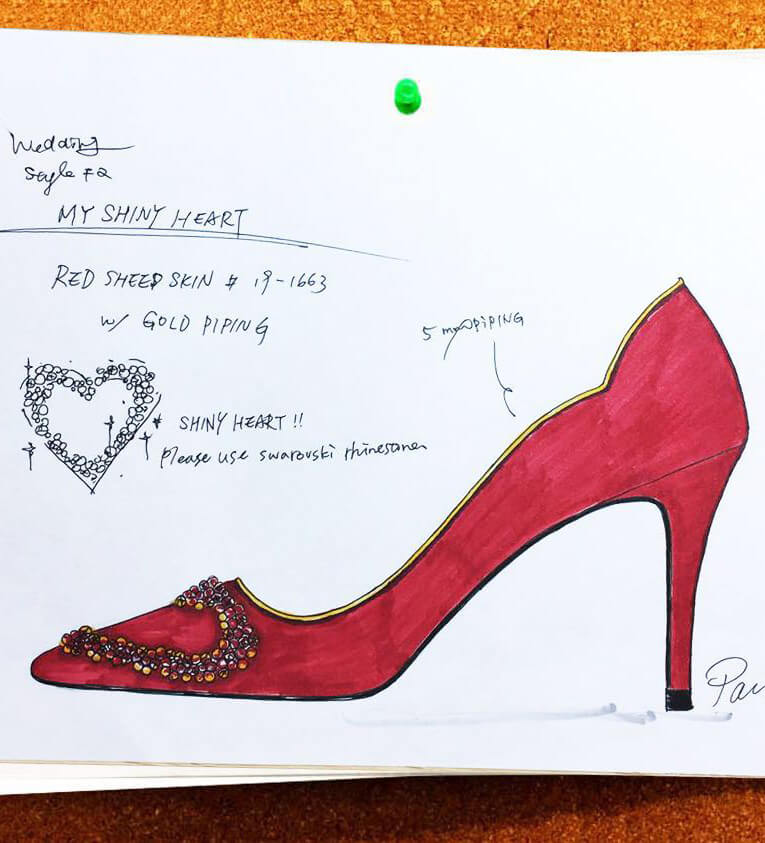 Wedding
Style #2
MY SHINY HEART
RED SHEEP SKIN # 19-1663
w/ GOLD PIPING
5 mm PIPING
SHINY HEART !!
please use swarovski rhinestones